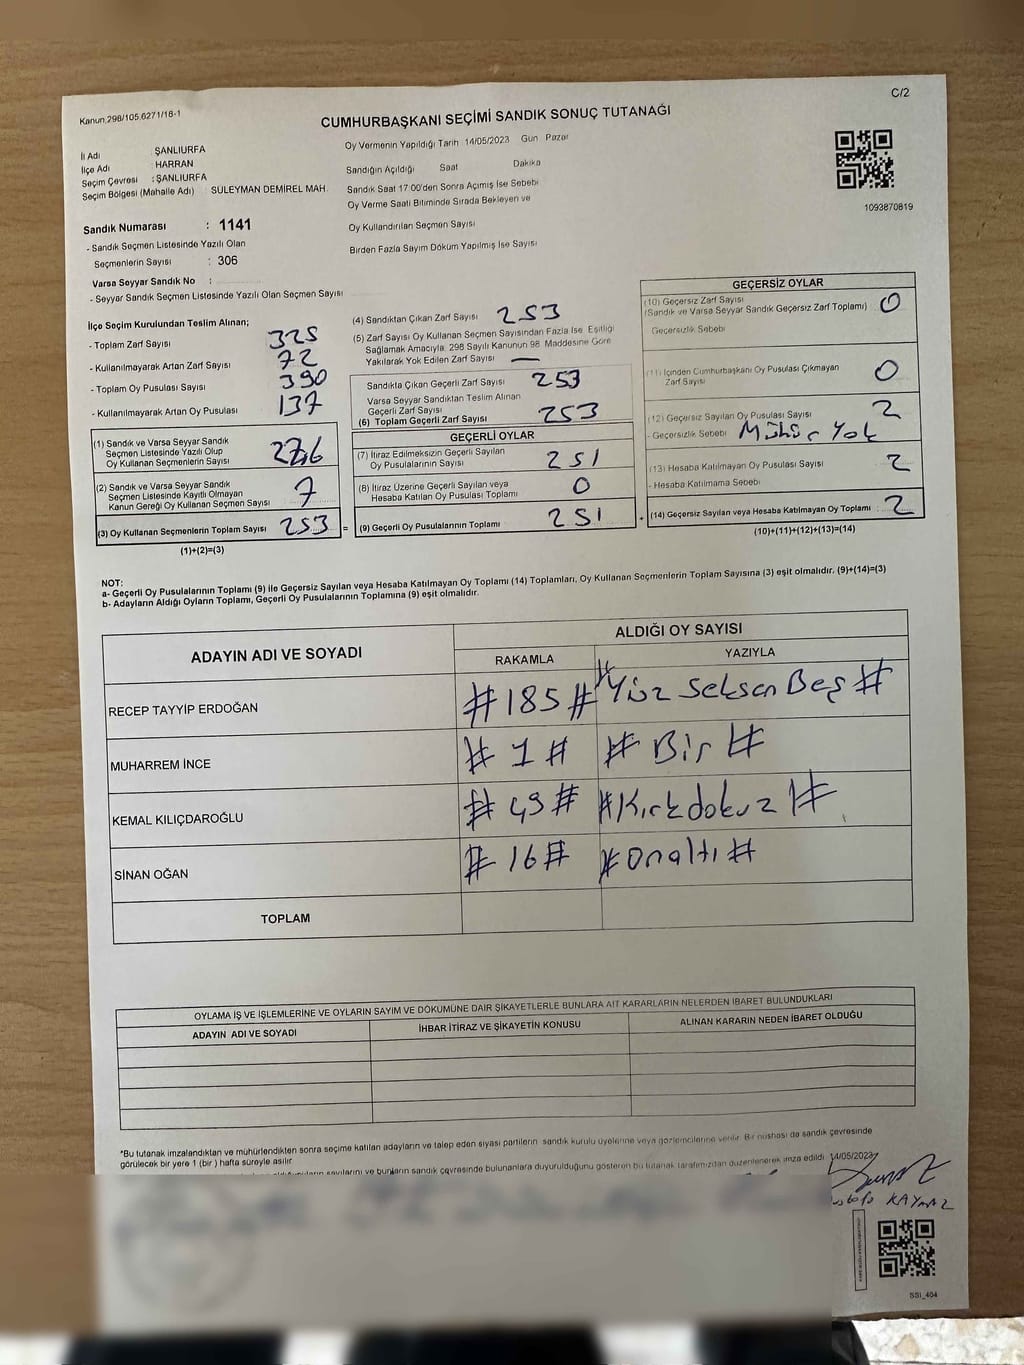 C/2
Kanun.298/105.6271/16-1
CUMHURBAŞKANI SEÇİMİ SANDIK SONUÇ TUTANAĞI
1093870819
İl Adı ŞANLIURFA
İlçe Adı HARRAN
Seçim Çevresi : ŞANLIURFA
Seçim Bölgesi (Mahalle Adı) : SÜLEYMAN DEMİREL MAH.
Oy Vermenin Yapıldığı Tarih 14/05/2023 Gün Pazar
Sandığın Açıldığı Saat Dakika
Sandık Saat 17:00'den Sonra Açımış İse Sebebi
Oy Verme Saati Bitiminde Sırada Bekleyen ve
Oy Kullandırılan Seçmen Sayısı
Birden Fazla Sayım Döküm Yapılmış İse Sayısı
Sandık Numarası : 1141
- Sandık Seçmen Listesinde Yazılı Olan
Seçmenlerin Sayısı : 306
Varsa Seyyar Sandık No :
- Seyyar Sandık Seçmen Listesinde Yazılı Olan Seçmen Sayısı
İlçe Seçim Kurulundan Teslim Alınan;
- Toplam Zarf Sayısı 325
- Kullanılmayarak Artan Zarf Sayısı 72
- Toplam Oy Pusulası Sayısı 390
- Kullanılmayarak Artan Oy Pusulası 137
(1) Sandık ve Varsa Seyyar Sandık
Seçmen Listesinde Yazılı Olup
Oy Kullanan Seçmenlerin Sayısı
(2) Sandık ve Varsa Seyyar Sandık
Seçmen Listesinde Kayıtlı Olmayan
Kanun Gereği Oy Kullanan Seçmen Sayısı 7
(3) Oy Kullanan Seçmenlerin Toplam Sayısı 253 =
(1)+(2)=(3)
(4) Sandıktan Çıkan Zarf Sayısı 253
(5) Zarf Sayısı Oy Kullanan Seçmen Sayısından Fazla İse, Eşitliği
Sağlamak Amacıyla, 298 Sayılı Kanunun 98. Maddesine Göre
Yakılarak Yok Edilen Zarf Sayısı —
Sandıkta Çıkan Geçerli Zarf Sayısı 253
Varsa Seyyar Sandıktan Teslim Alınan
Geçerli Zarf Sayısı
(6) Toplam Geçerli Zarf Sayısı 253
GEÇERLİ OYLAR
(7) İtiraz Edilmeksizin Geçerli Sayılan
Oy Pusulalarının Sayısı 251
(8) İtiraz Üzerine Geçerli Sayılan veya
Hesaba Katılan Oy Pusulası Toplamı 0
(9) Geçerli Oy Pusulalarının Toplamı 251 +
GEÇERSİZ OYLAR
(10) Geçersiz Zarf Sayısı
(Sandık ve Varsa Seyyar Sandık Geçersiz Zarf Toplamı) 0
Geçersizlik Sebebi
(11) İçinden Cumhurbaşkanı Oy Pusulası Çıkmayan
Zarf Sayısı 0
(12) Geçersiz Sayılan Oy Pusulası Sayısı 2
- Geçersizlik Sebebi Mühür Yok
(13) Hesaba Katılmayan Oy Pusulası Sayısı 2
- Hesaba Katılmama Sebebi
(14) Geçersiz Sayılan veya Hesaba Katılmayan Oy Toplamı : 2
(10)+(11)+(12)+(13)=(14)
NOT:
a- Geçerli Oy Pusulalarının Toplamı (9) ile Geçersiz Sayılan veya Hesaba Katılmayan Oy Toplamı (14) Toplamları, Oy Kullanan Seçmenlerin Toplam Sayısına (3) eşit olmalıdır. (9)+(14)=(3)
b- Adayların Aldığı Oyların Toplamı, Geçerli Oy Pusulalarının Toplamına (9) eşit olmalıdır.
ADAYIN ADI VE SOYADI
ALDIĞI OY SAYISI
RAKAMLA YAZIYLA
RECEP TAYYİP ERDOĞAN #185# #Yüz Seksen Beş#
MUHARREM İNCE #1# #Bir#
KEMAL KILIÇDAROĞLU #49# #Kırkdokuz#
SİNAN OĞAN #16# #Onaltı#
TOPLAM
OYLAMA İŞ VE İŞLEMLERİNE VE OYLARIN SAYIM VE DÖKÜMÜNE DAİR ŞİKAYETLERLE BUNLARA AİT KARARLARIN NELERDEN İBARET BULUNDUKLARI
ADAYIN ADI VE SOYADI İHBAR İTİRAZ VE ŞİKAYETİN KONUSU ALINAN KARARIN NEDEN İBARET OLDUĞU
*Bu tutanak imzalandıktan ve mühürlendikten sonra seçime katılan adayların ve talep eden siyasi partilerin sandık kurulu üyelerine veya gözlemcilerine verilir. Bir nüshası da sandık çevresinde
görülecek bir yere 1 (bir) hafta süreyle asılır
sayılarını ve bunların sandık çevresinde bulunanlara duyurulduğunu gösteren bu tutanak tarafımızdan düzenlenerek imza edildi. 14/05/2023
KAYMAZ
SSI_404